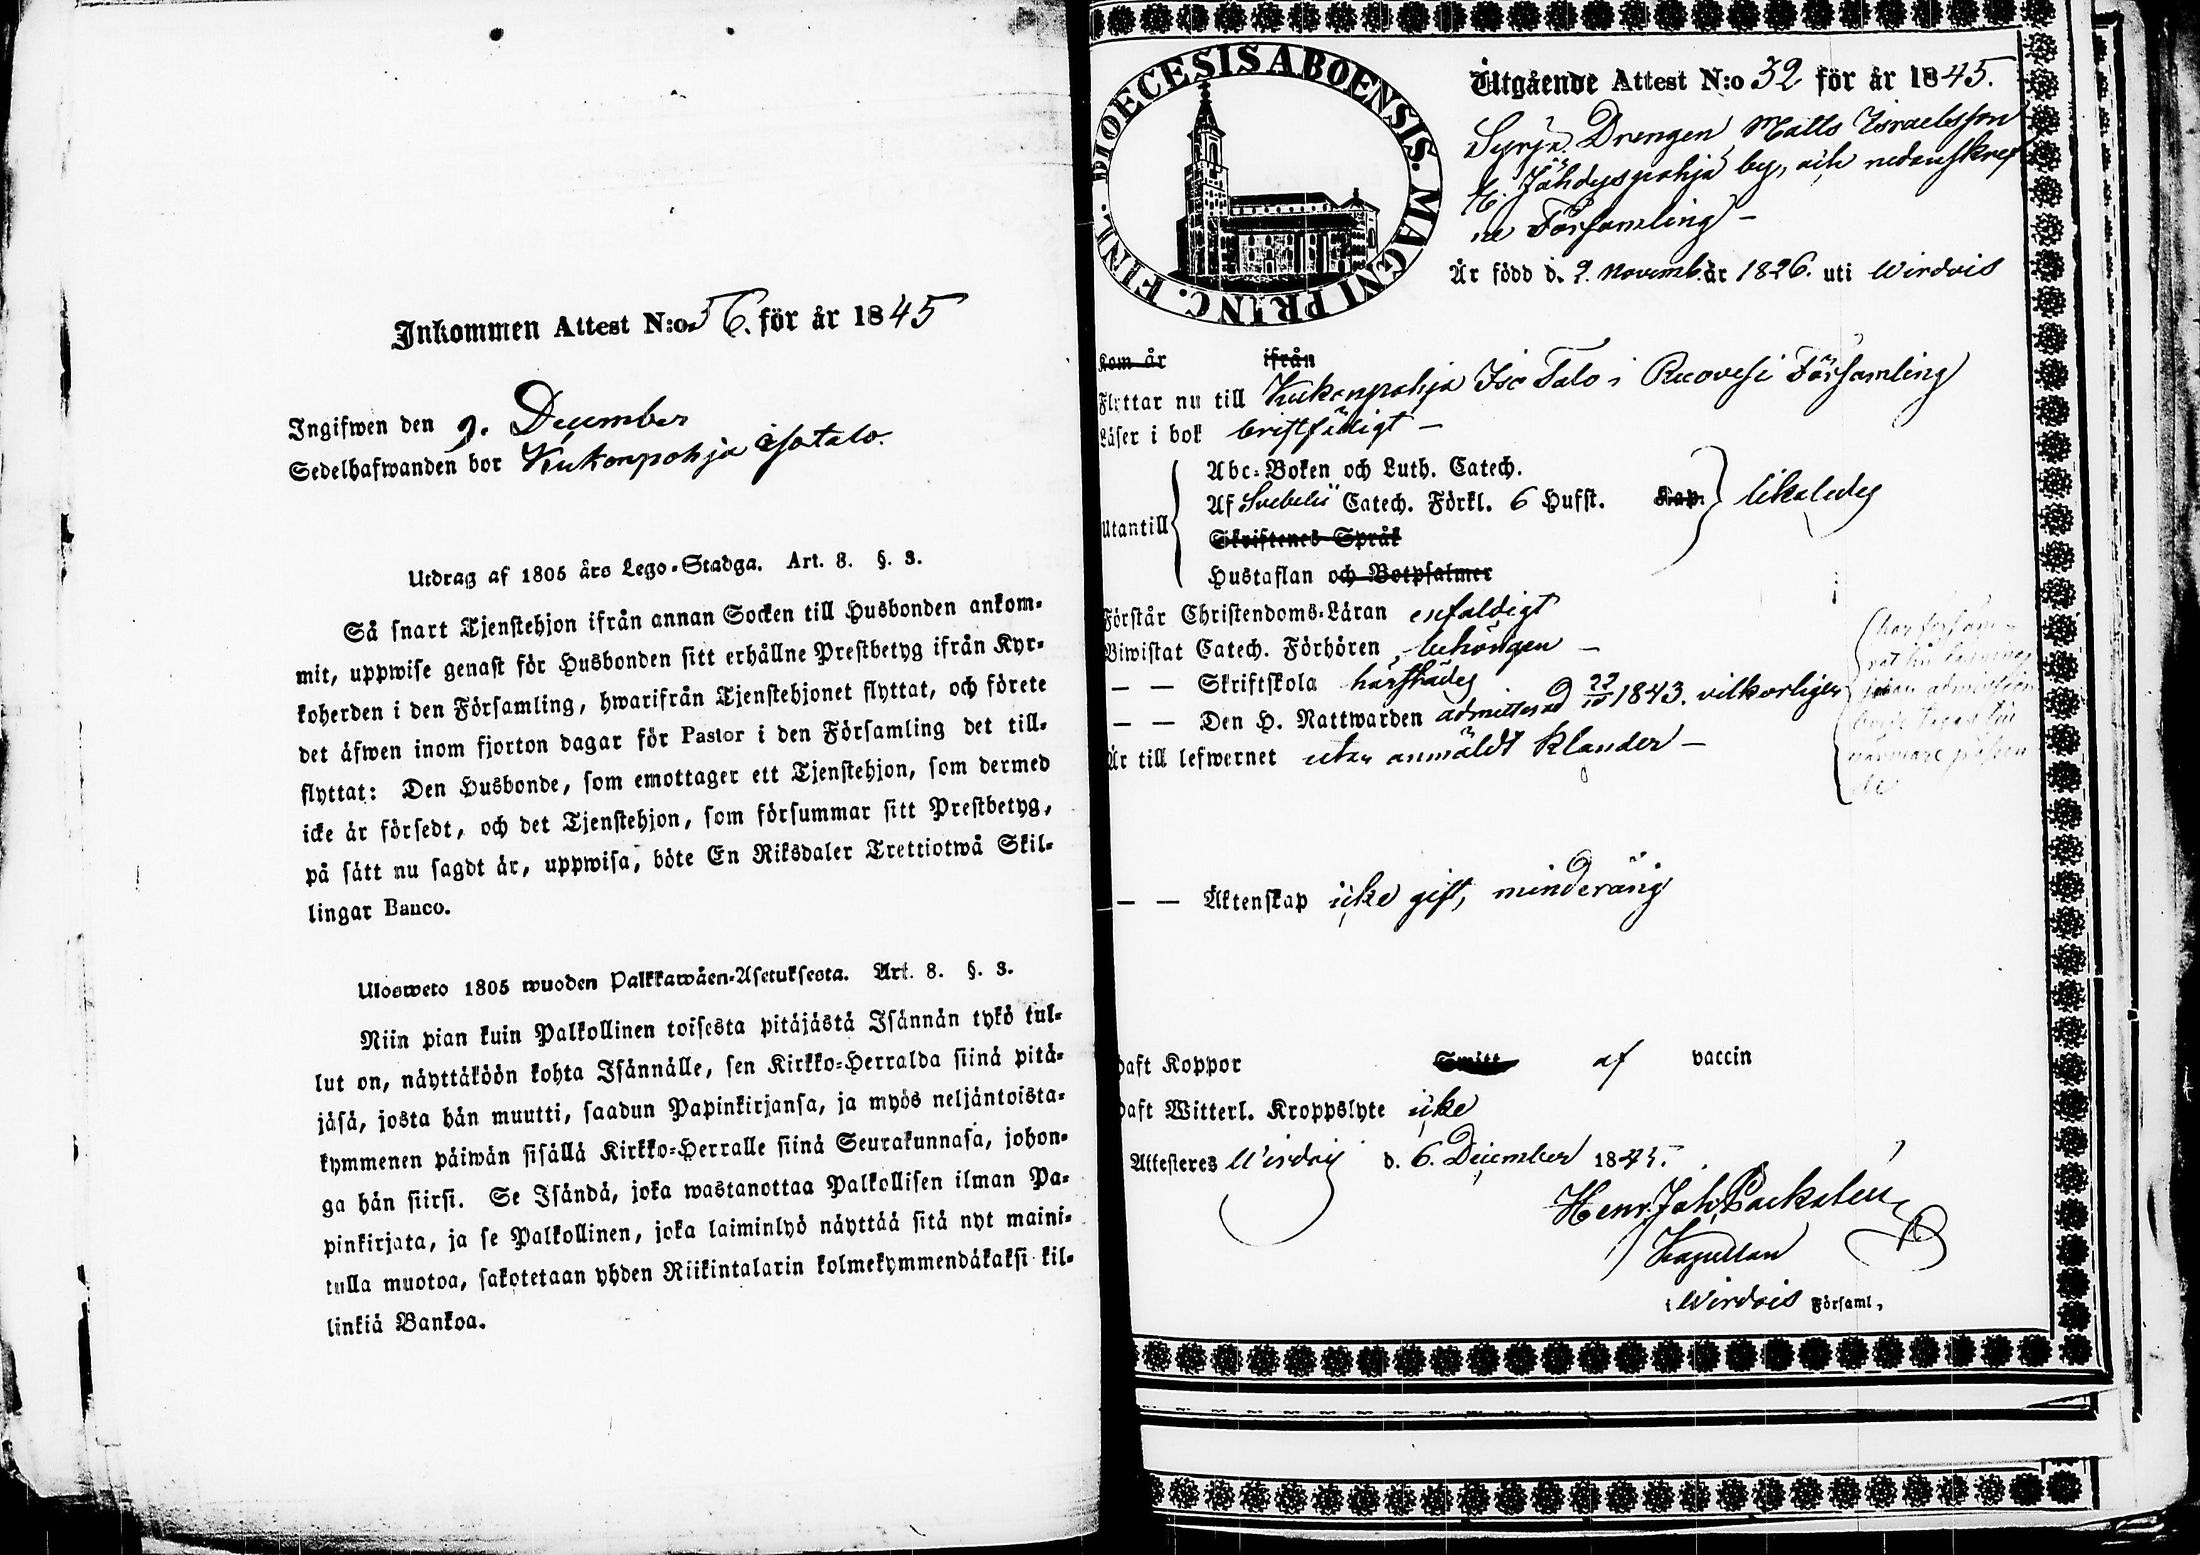 Inkommen Attest N:o 56. för år 1845
Ingifwen den 9. December
Sedelhafwanden bor Kukonpohja Isotalo.
Utdrag af 1805 års Lego-Stadga. Art. 8. §. 3.
Så snart Tjenstehjon ifrån annan Socken till Husbonden ankom-
mit, uppwise genast för Husbonden sitt erhållne Prestbetyg ifrån Kyr-
koherden i den Församling, hwarifrån Tjenstehjonet flyttat, och förete
det äfwen inom fjorton dagar för Pastor i den Församling det till-
flyttat: Den Husbonde, som emottager ett Tjenstehjon, som dermed
icke är försedt, och det Tjenstehjon, som försummar sitt Prestbetyg,
på sätt nu sagdt är, uppwisa, böte En Riksdaler Trettiotwå Skil-
lingar Banco.
Ulosweto 1805 wuoden Palkkawäen-Asetuksesta. Art. 8. §. 3.
Niin pian kuin Palkollinen toisesta pitäjästä Isännän tykö tul-
lut on, näyttäköön kohta Isännälle, sen Kirkko-Herralda siinä pitä-
jäsä, josta hän muutti, saadun Papinkirjansa, ja myös neljäntoista-
kymmenen päiwän sisällä Kirkko-Herralle siinä Seurakunnasa, johon-
ga hän siirsi. Se Isändä, joka wastanottaa Palkollisen ilman Pa-
pinkirjata, ja se Palkollinen, joka laiminlyö näyttää sitä nyt maini-
tulla muotoa, sakotetaan yhden Riikintalarin kolmekymmendäkaksi kil-
linkiä Bankoa.
DIOECESIS ABOENSIS. MAGNI PRINC. FINL.
Utgående Attest N:o 32 för år 1845.
Drengen Matts Israelsson
Jähdyspohja by, och nedanskref
ne Församling -
Är född d. 2. Novemb. år 1826. uti Wirdois
Kom år ifrån
Flyttar nu till Kukonpohja Iso Talo i Ruovesi Församling
Läser i bok bristfäligt -
Abc-Boken och Luth. Catech.
Af Svebelii Catech. Förkl. 6 Hufst. Kap. likaledes
Utantill
Skriftenes Språk
Hustaflan och Botpsalmer
Förstår Christendoms-Läran enfaldigt
Biwistat Catech. Förhören behörigen -
— — Skriftskola härstädes
— — Den H. Nattwarden admitterad d 22/10 1843. vilkorligen
har försäm-
Är till lefwernet utan anmäldt klander -
— — Äktenskap icke gift, minderårig
Haft Koppor Smitt af vaccin
Haft Witterl. Kroppslyte icke
Attesteres Wirdois d. 6. December 1845.
Henr. Joh. Backsten
Kapellan
i Wirdois Församl.